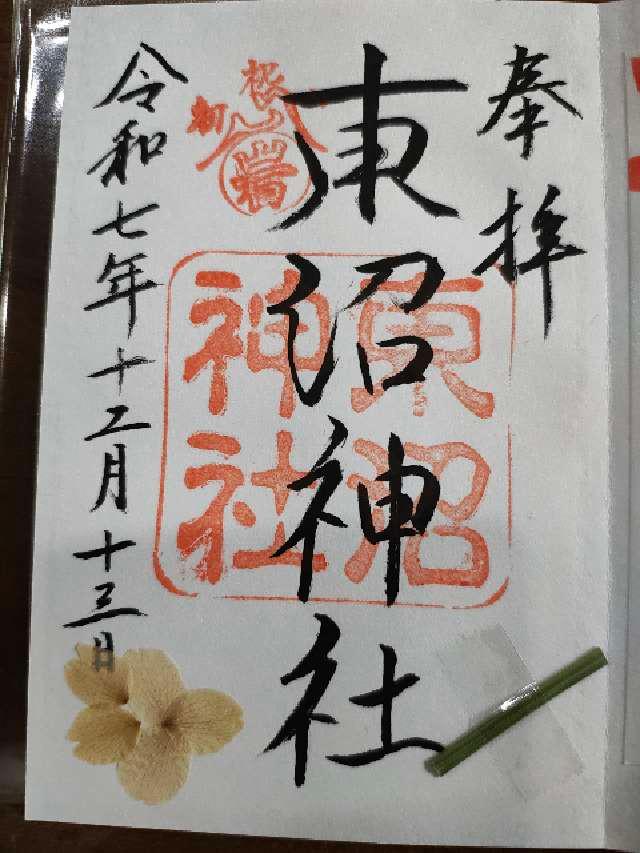 奉拝
東沼神社
東沼
神社
令和七年十二月十三日